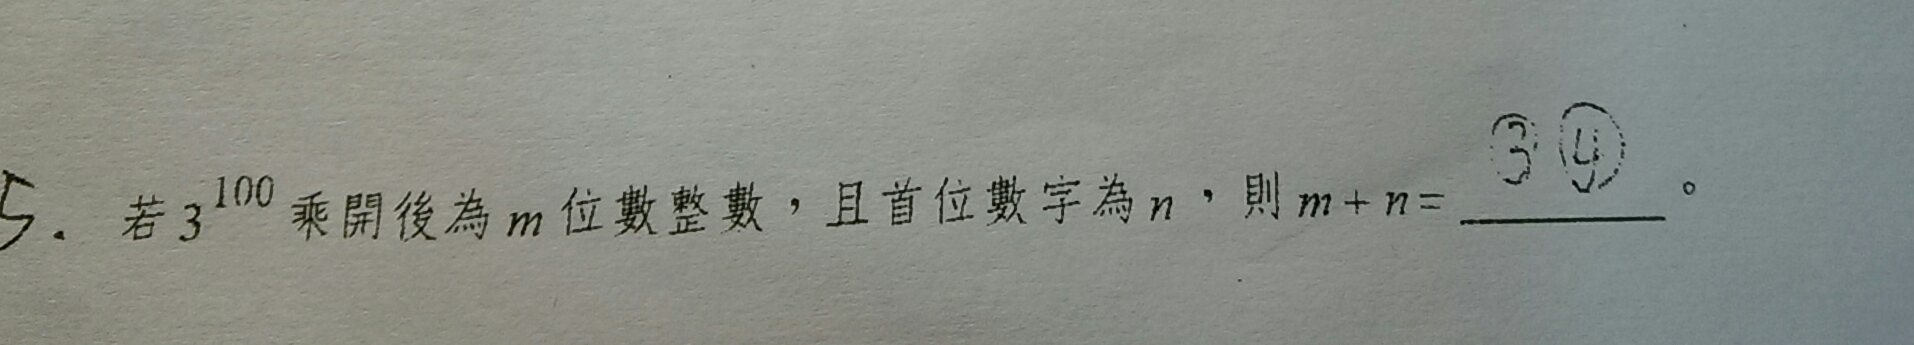 5. 若3^100乘開後為m位數整數，且首位數字為n，則m+n= ③④ 。